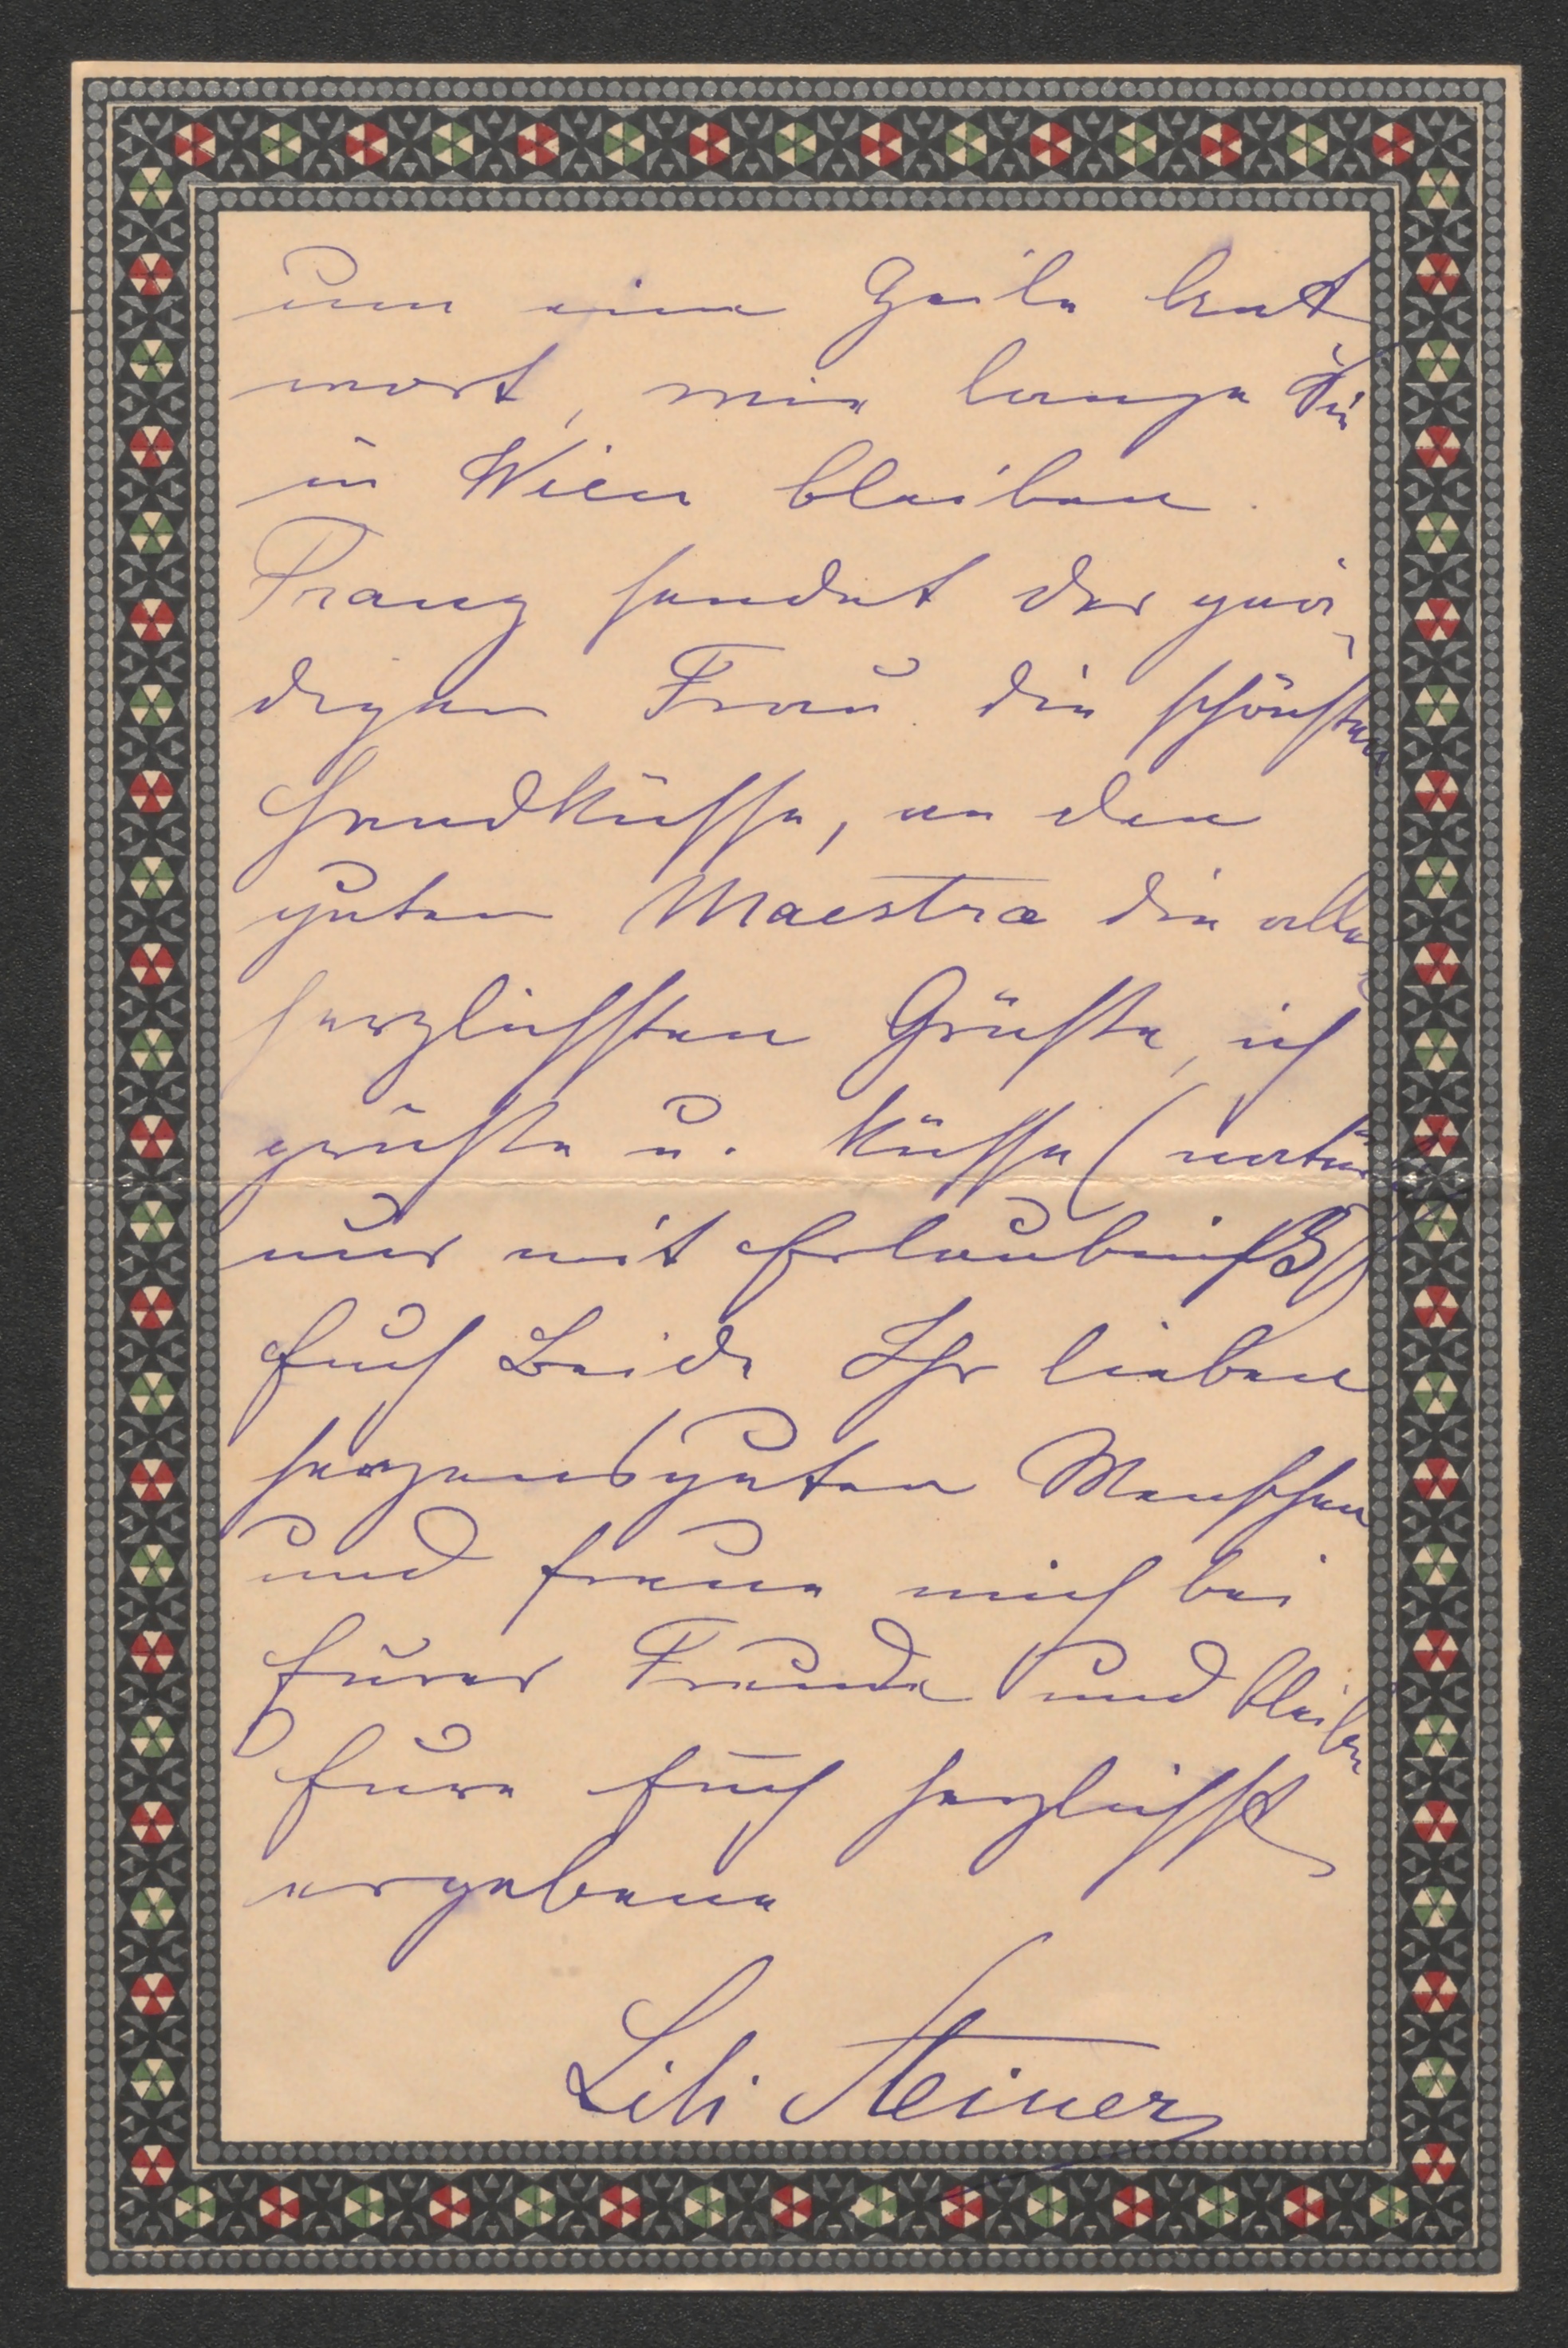 um eine Zeile Ant
wort, wie lange Sie
in Wien bleiben.
Franz sendet der gnä
digen Frau die schönsten
Handküsse, an den
guten Maestro die aller
herzlichsten Grüße, ich
grüße u. küsse (natürlich
nur mit Erlaubniß)
Euch Beide Ihr lieben
herzensguten Menschen
und freue mich bei
Eurer Freude und bleibe
Eure Euch herzlichst
ergebene
Lili Steiner